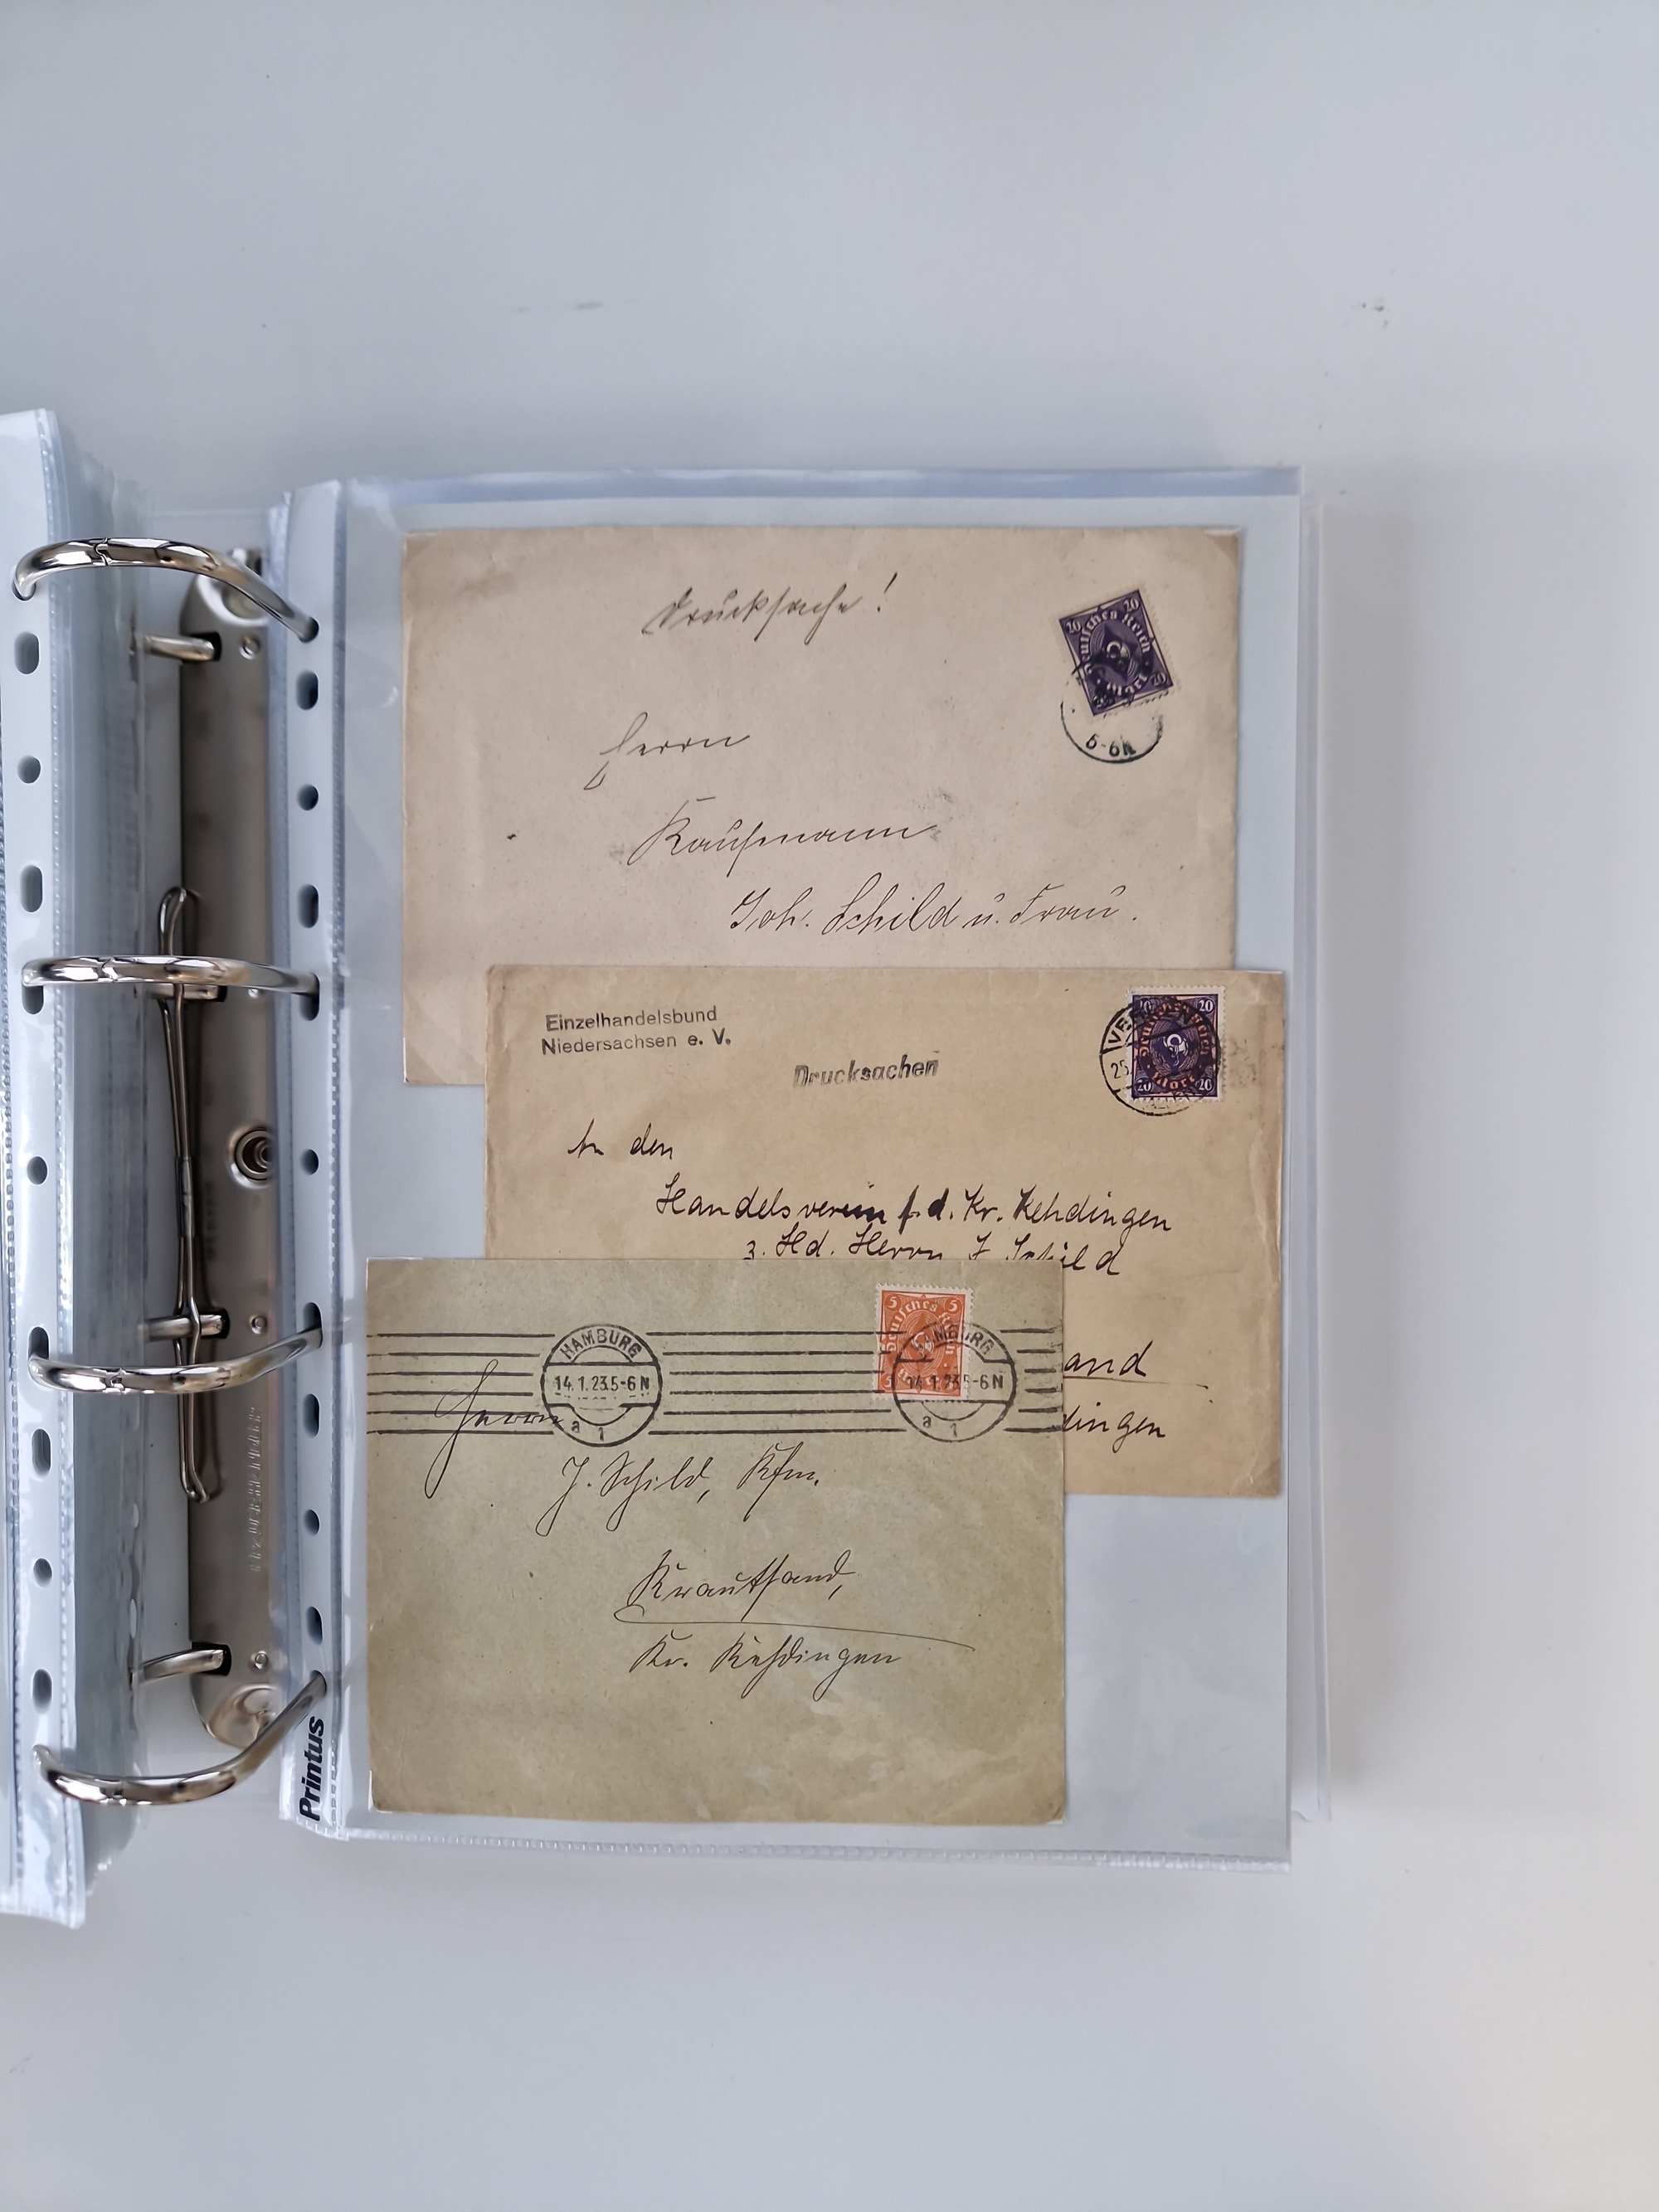 Drucksache!
20 20
Deutsches Reich
Mark
20
5-6N
Herrn
Kaufmann
Joh. Schild u. Frau.
Einzelhandelsbund
Niedersachsen e. V.
Drucksachen
20 20
Deutsches Reich
Mark
20 20
VE
25.
An den
Handelsverein f. d. Kr. Kehdingen
z. Hd. Herrn J Schild
and
dingen
5 5
Deutsches
HAMBURG
14.1.23.5-6N
a 1
HAMBURG
14.1.23.5-6N
a 1
Herrn
J. Schild, Kfm.
Krautsand,
Kr. Kehdingen
Printus